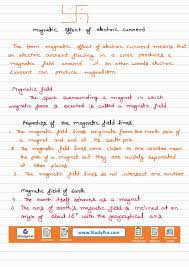 magnetic effect of electric current
The term magnetic effect of electric current means that
an electric current flowing in a wire produces a
magnetic field around it. In other words electric
current can produce magnetism.
Magnetic field
The space surrounding a magnet in which
magnetic force is exerted is called a magnetic field.
Properties of the magnetic field lines
1. The magnetic field lines originate from the north pole of
a magnet and end at its south pole
2. The magnetic field lines come closer to one another near
the pole of a magnet but they are widely separated
at other places
3. The magnetic field lines do not intersect one another.
Magnetic field of earth
The earth itself behaves as a magnet
The axis of earth's magnetic field is inclined at an
angle of about 15° with the geographical axis
www.StudyPur.com